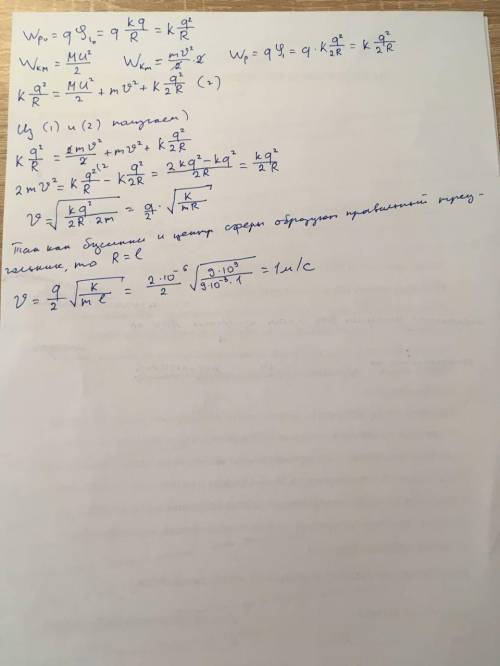 Wр₀ = qφ₁₀ = q kq/R = k q²/R
Wкм = MU²/2 Wкm = mv²/2 · 2 Wр = qφ₁ = q · k q/2R = k q²/2R
k q²/R = MU²/2 + mv² + k q²/2R (2)
Из (1) и (2) получаем)
k q²/R = 2mv²/2 + mv² + k q²/2R
2mv² = k q²/R - k q²/2R = 2kq² - kq²/2R = kq²/2R
v = √(kq²/2R 2m) = q/2 · √(k/mR)
Так как бусинки и центр сферы образуют правильный треу-
гольник, то R = l
v = q/2 √(k/m l) = 2·10⁻⁶/2 √(9·10⁹/9·10⁻³·1) = 1м/с